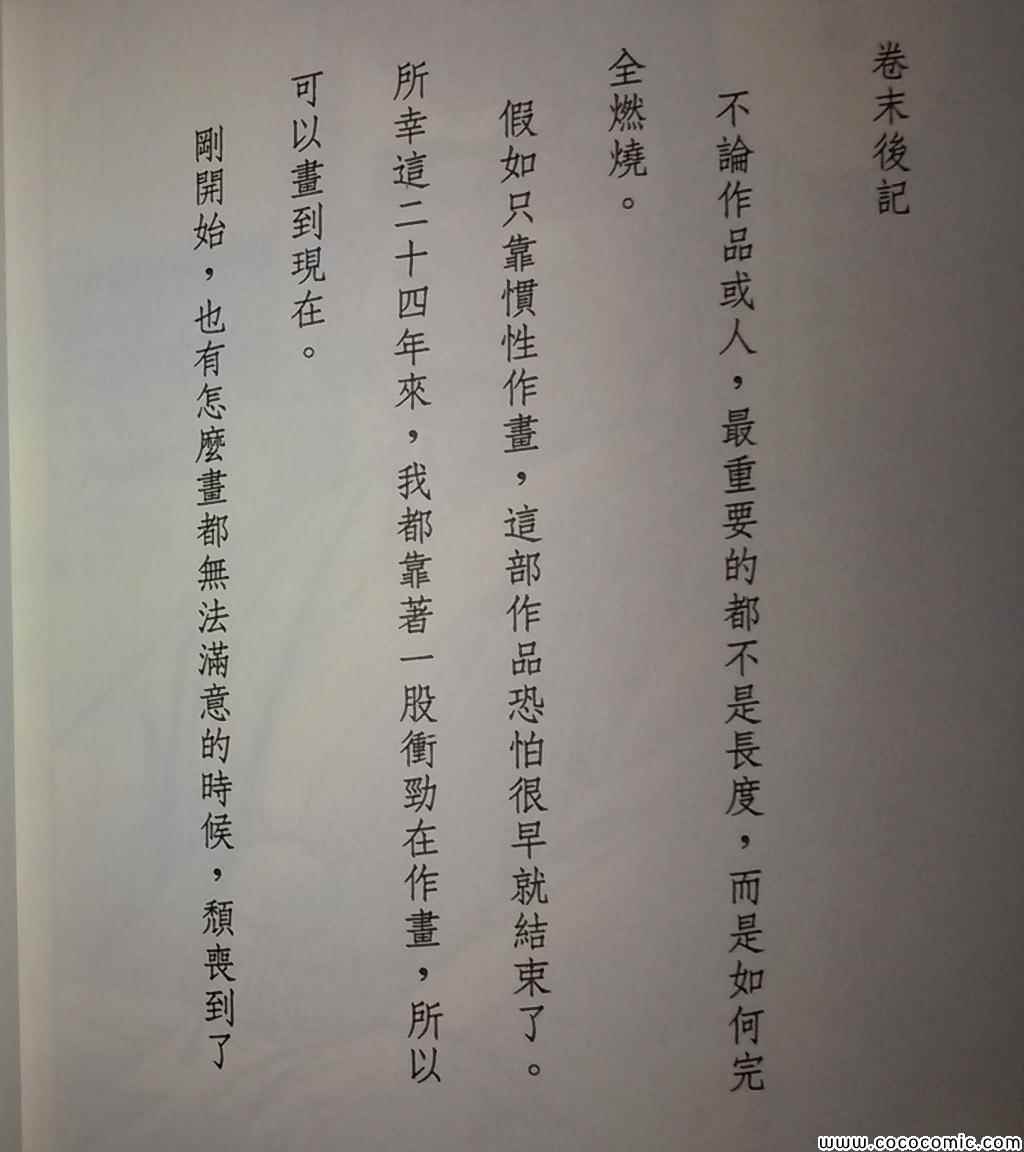 卷末後記
不論作品或人，最重要的都不是長度，而是如何完
全燃燒。
假如只靠慣性作畫，這部作品恐怕很早就結束了。
所幸這二十四年來，我都靠著一股衝勁在作畫，所以
可以畫到現在。
剛開始，也有怎麼畫都無法滿意的時候，頹喪到了
www.cococomic.com